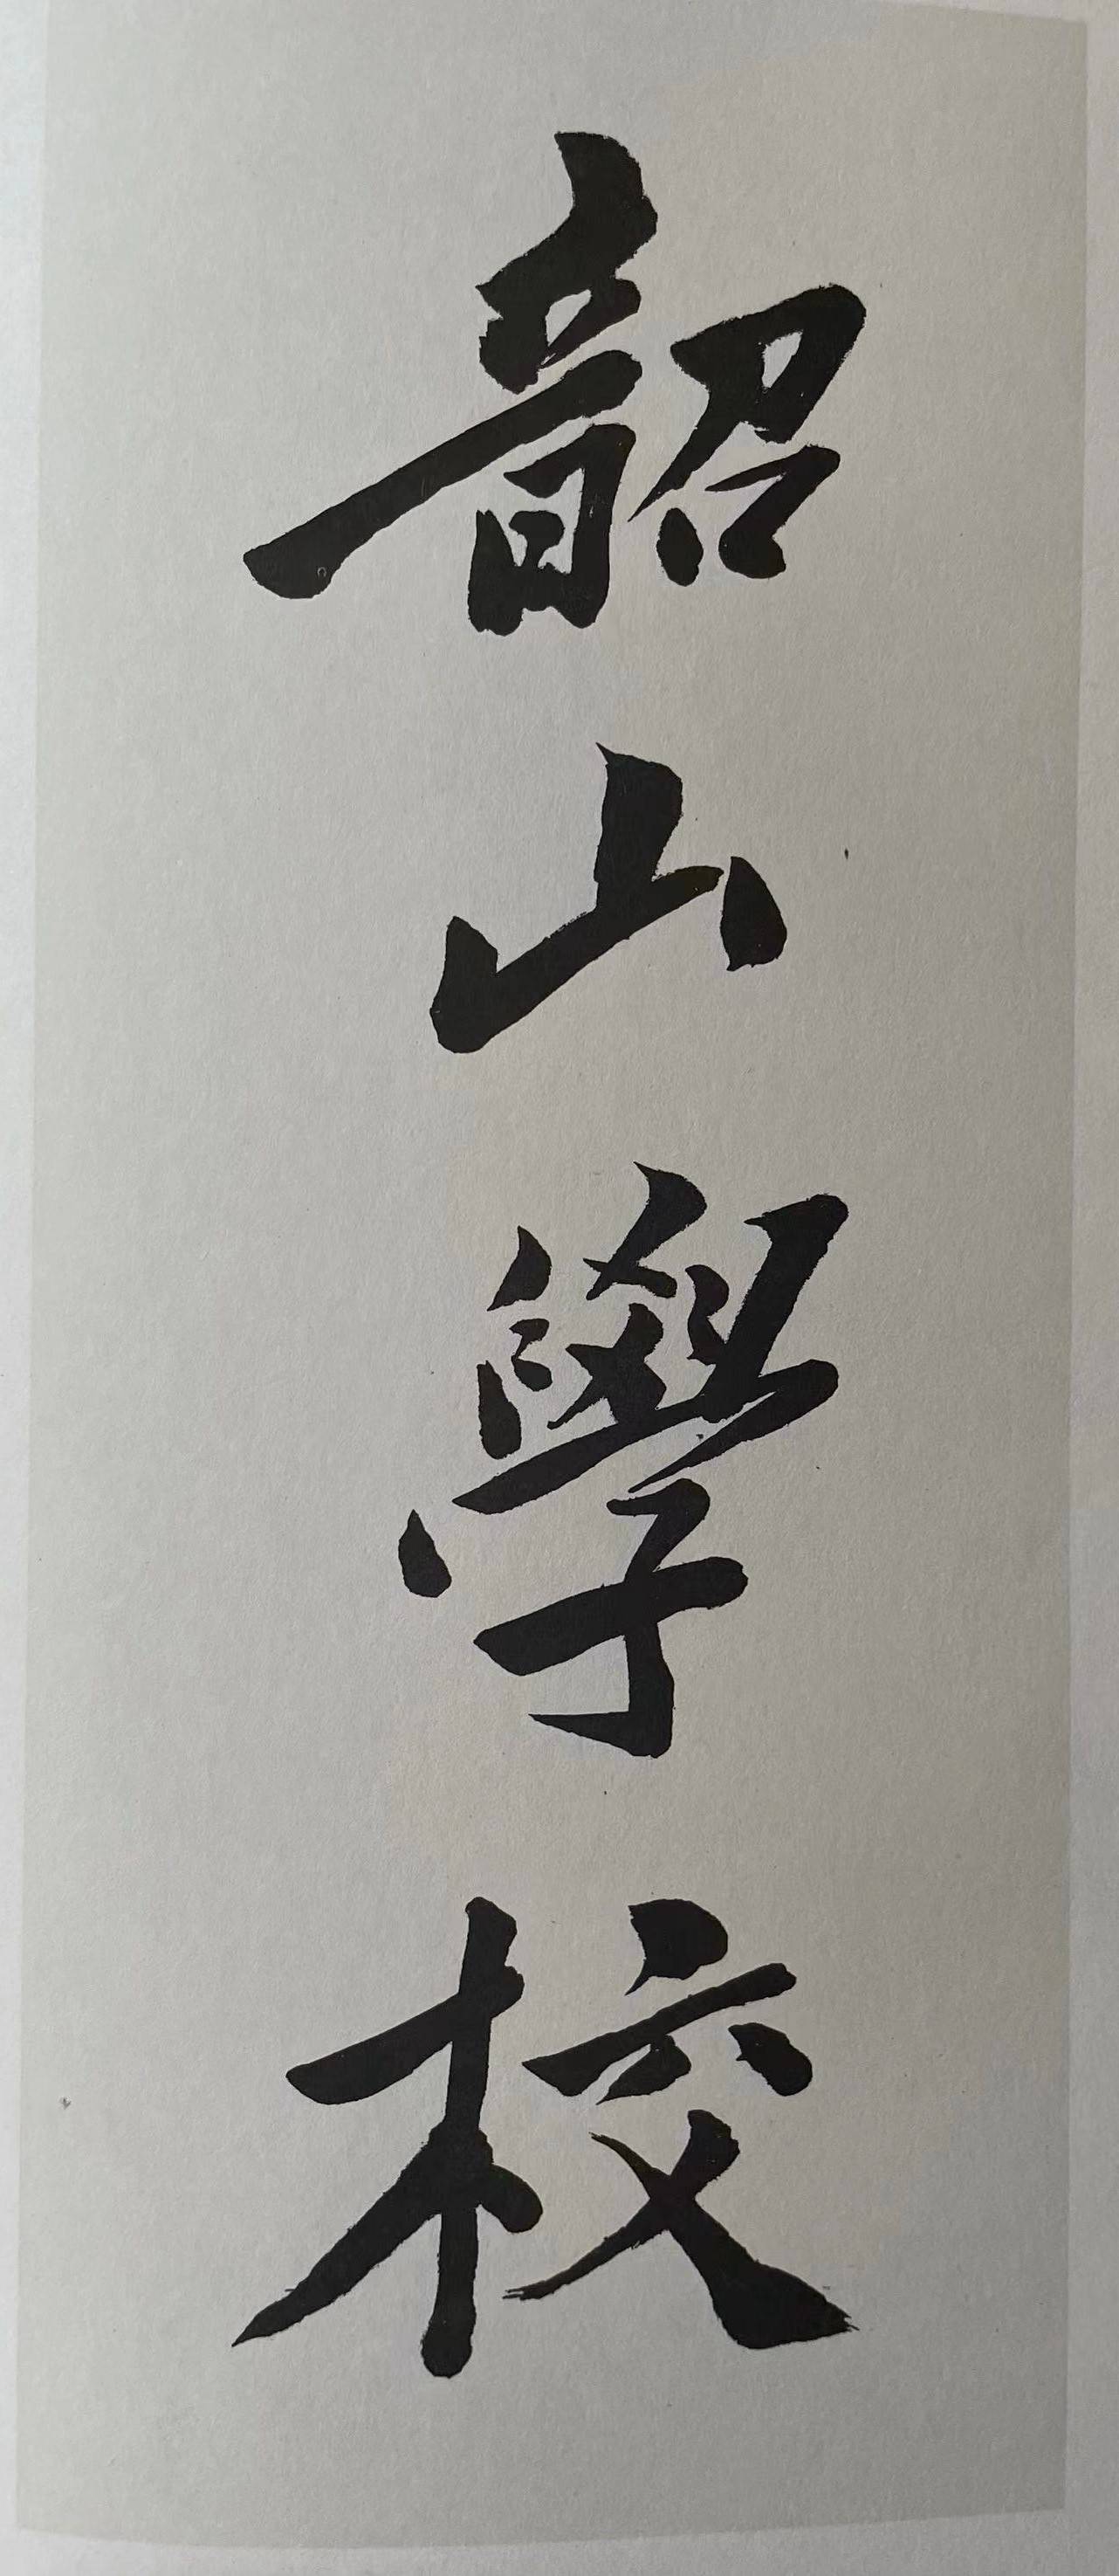 韶山學校